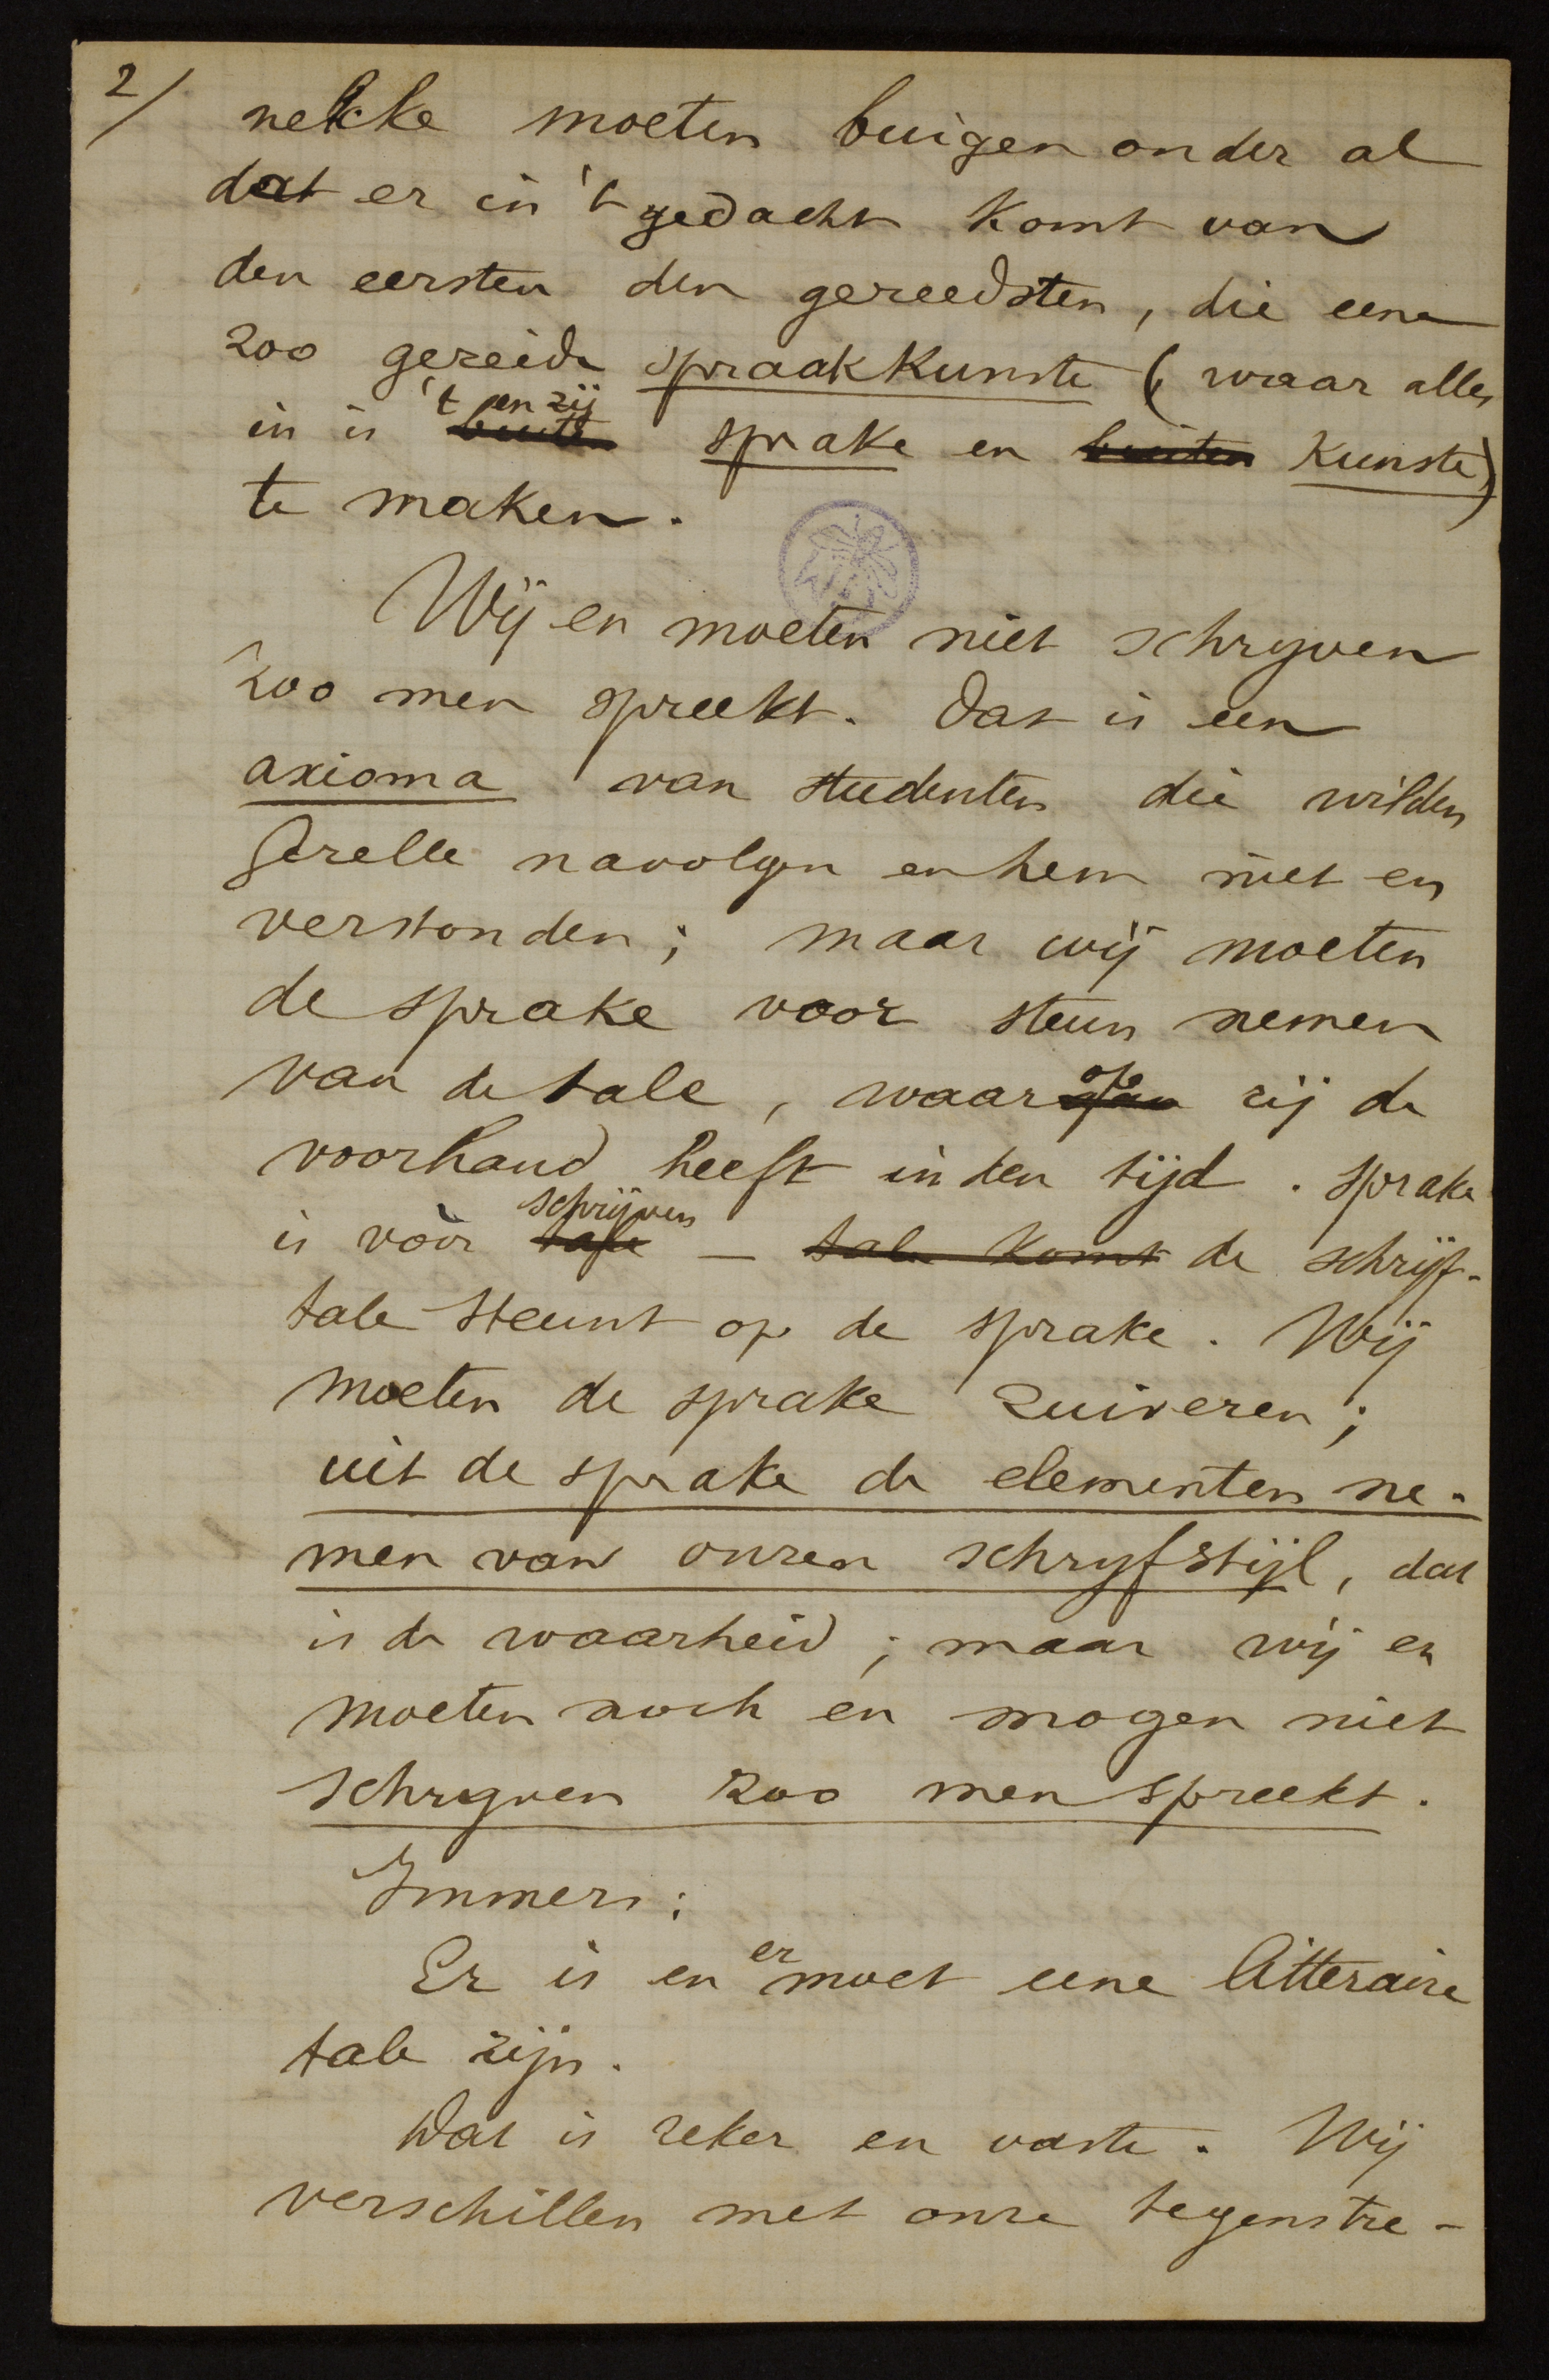 2/
nekke moeten buigen onder al
dat er in 't gedacht komt van
den eersten den gereedsten, die eene
zoo gereide spraakkunste (waar alles
in is buiten 't en zij sprake en buiten kunste)
te maken.
Wij en moeten niet schryven
zoo men spreekt. Dat is een
axioma van studenten die wilden
Gezelle navolgen en hem niet en
verstonden; maar wij moeten
de sprake voor steun nemen
van de tale, waarop zij de
voorhand heeft in den tijd. Sprake
is vóór tale schrijven – tale komt de schrijf-
tale steunt op de sprake. Wij
moeten de sprake zuiveren;
uit de sprake de elementen ne-
men van onzen schryfstijl, dat
is de waarheid; maar wij en
moeten noch en mogen niet
schryven zoo men spreekt.
Immers:
Er is en er moet eene litteraire
tale zijn.
Dat is zeker en vaste. Wij
verschillen met onze tegenstre-